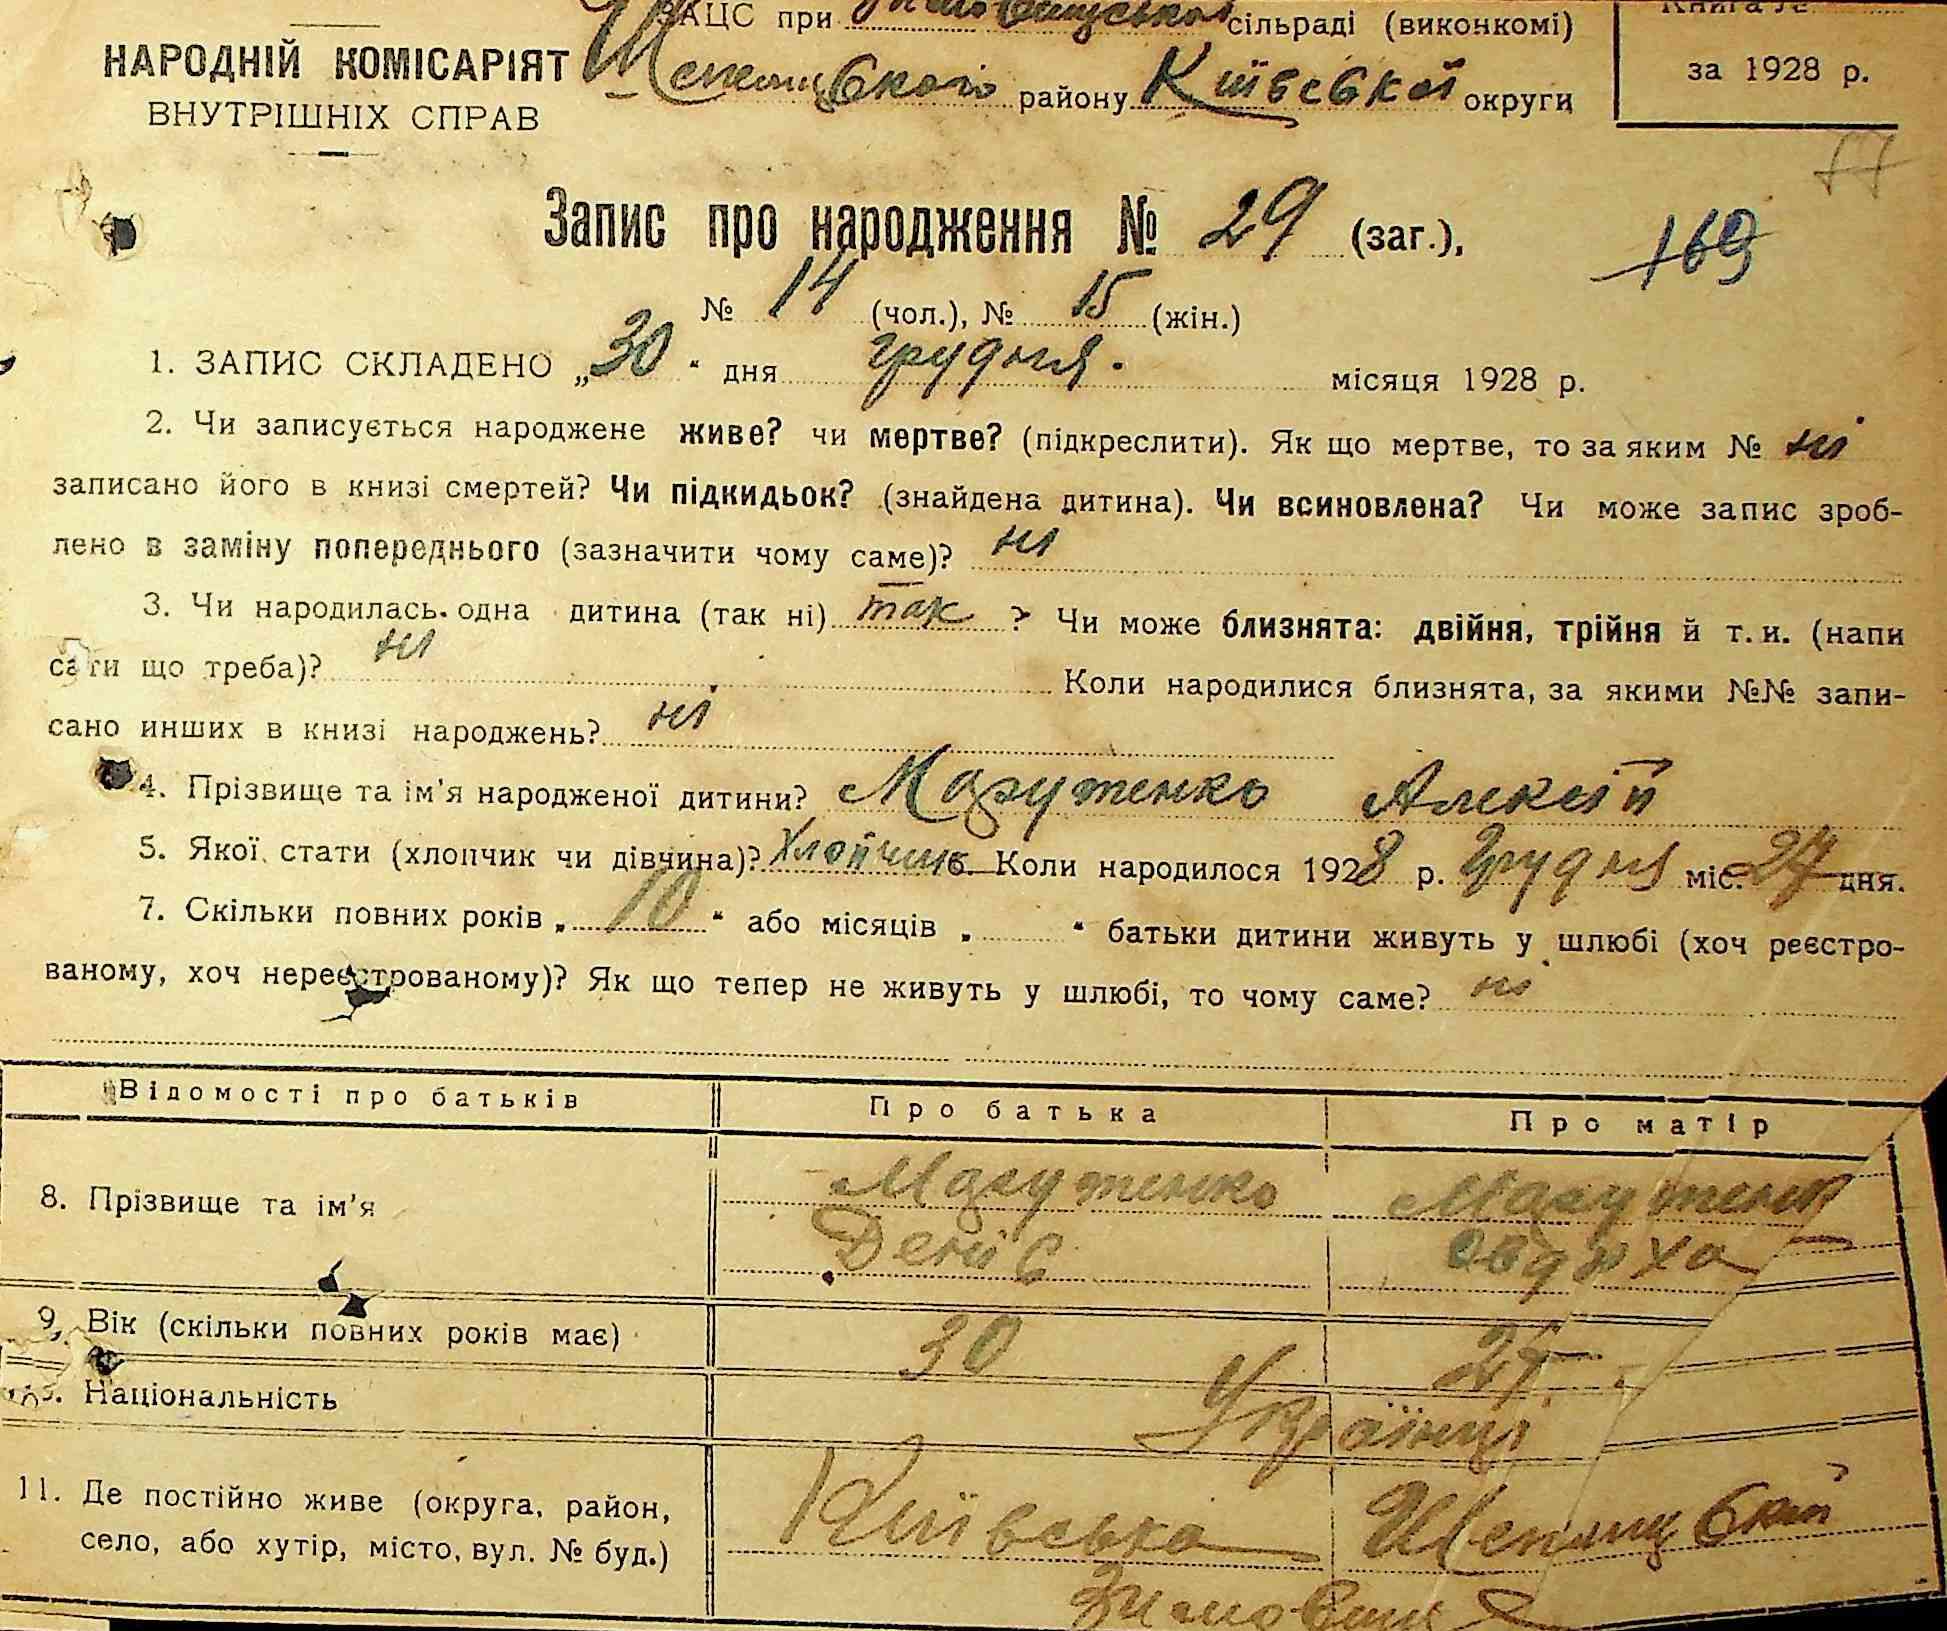 ЗАЦС при сільраді (виконкомі)
НАРОДНІЙ КОМІСАРІЯТ
ВНУТРІШНІХ СПРАВ
району Київської округи
Книга №
за 1928 р.
Запис про народження № 29 (заг.),
169
№ 14 (чол.), № 15 (жін.)
1. ЗАПИС СКЛАДЕНО „30“ дня грудня місяця 1928 р.
2. Чи записується народжене живе? чи мертве? (підкреслити). Як що мертве, то за яким № ні
записано його в книзі смертей? Чи підкидьок? (знайдена дитина). Чи всиновлена? Чи може запис зроб-
лено в заміну попереднього (зазначити чому саме)? ні
3. Чи народилась одна дитина (так ні) так ? Чи може близнята: двійня, трійня й т. и. (напи
сати що треба)? ні Коли народилися близнята, за якими №№ запи-
сано инших в книзі народжень? ні
4. Прізвище та ім'я народженої дитини? Мазутенко Алексій
5. Якої стати (хлопчик чи дівчина)? Хлопчик 6. Коли народилося 1928 р. Грудня міс. 27 дня.
7. Скільки повних років „10“ або місяців „ “ батьки дитини живуть у шлюбі (хоч реєстро-
ваному, хоч нереєстрованому)? Як що тепер не живуть у шлюбі, то чому саме? ні
Відомості про батьків Про батька Про матір
8. Прізвище та ім'я Мазутенко Мазутенко
Деніс Євдоха
9. Вік (скільки повних років має) 30
10. Національність Українці
11. Де постійно живе (округа, район, Київська
село, або хутір, місто, вул. № буд.)